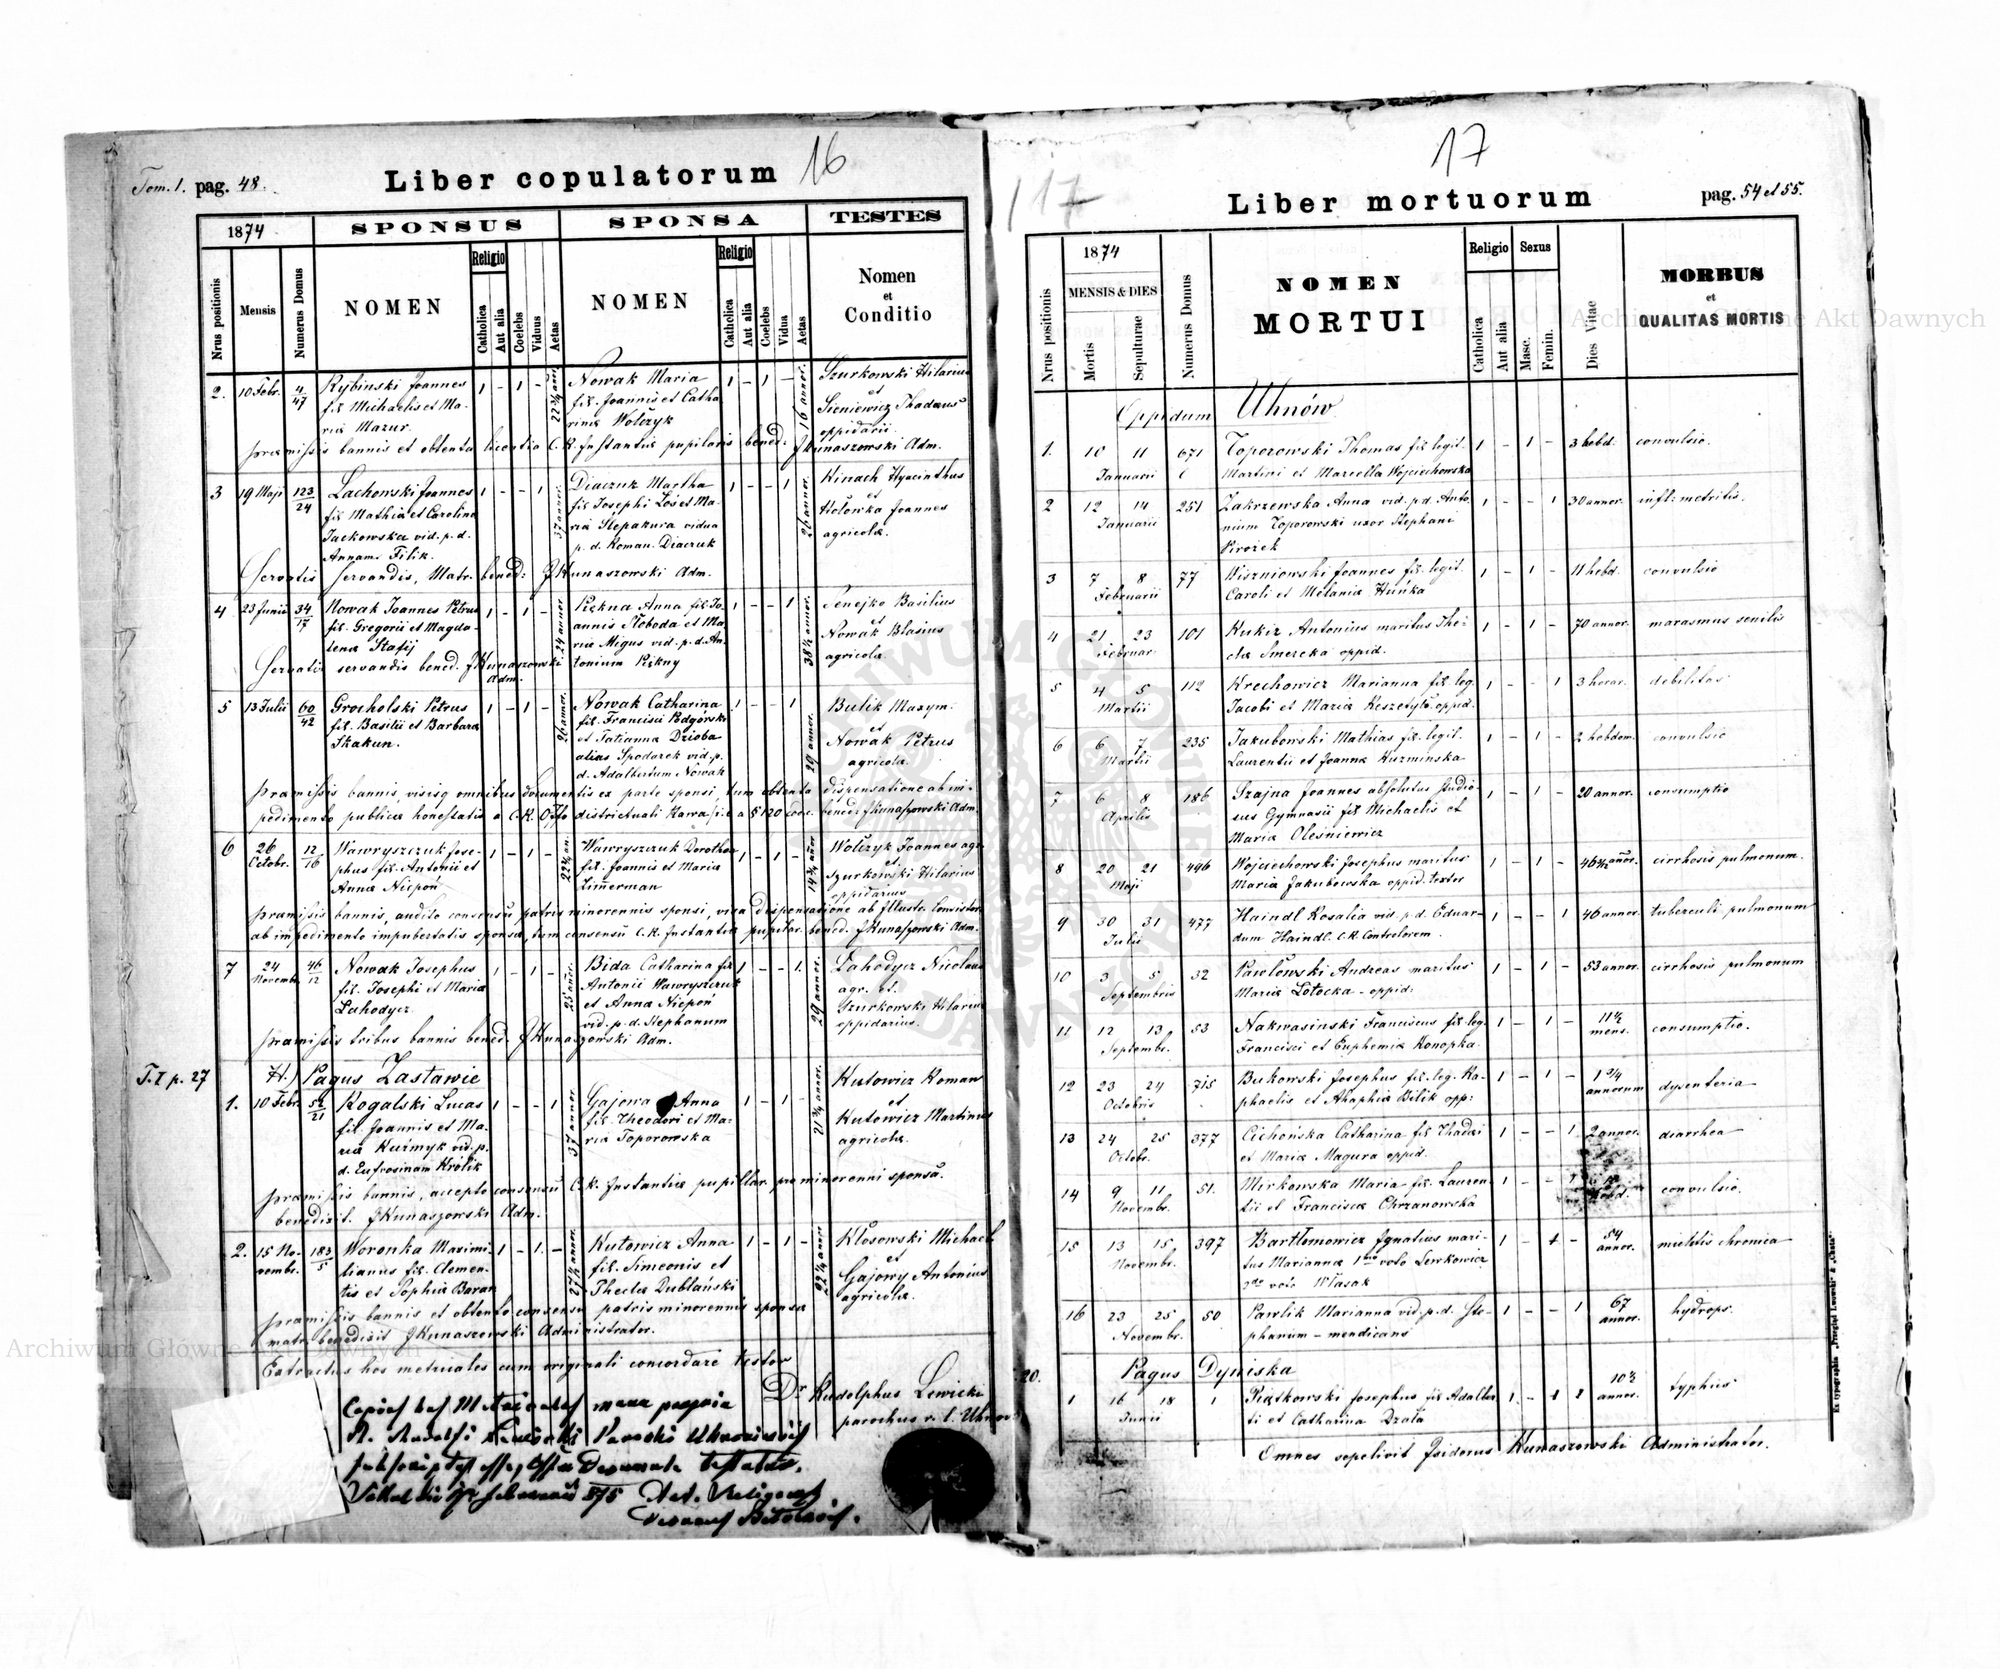 Tom. 1. pag. 48.
Liber copulatorum
16
1874
SPONSUS
SPONSA
TESTES
Nrus positionis
Mensis
Numerus Domus
NOMEN
Religio
Catholica
Aut alia
Coelebs
Viduus
Aetas
NOMEN
Religio
Catholica
Aut alia
Coelebs
Vidua
Aetas
Nomen
et
Conditio
2. 10 Febr. 4/47 Rybinski Joannes 1 - 1 - Nowak Maria 1 - 1 - 16 annor. Szurkowski Hilarius
fil. Michaelis et Ma- fil. Joannis et Catha et
riæ Mazur. rinæ Wolczyk Sieniewicz Thadæus
oppidarii
præmissis bannis et obtenta licentia C.K. Instantiæ pupilaris bened: JKunaszowski Adm.
3 19 Maji 123/24 Lachowski Joannes 1 - - 1 37 annor. Diaczuk Martha 1 - - 1 26 annor. Kinach Hyacinthus
fil. Mathiæ et Carolinæ fil. Josephi Łoś et Ma- et
Jackowska vid. p. d. riæ Slepakura vidua Hołowka Joannes
Annam Filik. p. d. Roman. Diaczuk agricolæ.
Servatis servandis, Matr. bened: JKunaszowski Adm.
4 23 Junii 34/17 Nowak Joannes Petrus 1 - 1 - 24 annor. Piękna Anna fil. Jo- 1 - - 1 38½ annor. Senejko Basilius
fil. Gregorii et Magda- annis Słoboda et Ma- et
lenæ Stafij riæ Migus vid. p. d. An- Nowak Blasius
Servatis servandis bened. JKunaszowski Adm. tonium Piękny agricolæ.
5 13 Julii 60/42 Grocholski Petrus 1 - 1 - 26 annor. Nowak Catharina 1 - - 1 29 annor. Bulik Maxym.
fil. Basilii et Barbaræ fil. Francisci Podgórski et
Skakun. et Tatianna Dzioba Nowak Petrus
alias Spodarek vid. p. agricolæ.
d. Adalbertum Nowak
præmissis bannis, visisq omnibus documentis ex parte sponsi, tum obtenta dispensatione ab im-
pedimento publicæ honestatis a C.K. Offo districtuali Rawa bened: JKunaszowski Adm.
6 26 Octobr. 12/16 Wawryszczuk Jose- 1 - 1 - Wawryszczuk Dorothea 1 - 1 - 14¾ annor Wolczyk Joannes agr.
phus fil. Antonii et fil. Joannis et Mariæ et
Annæ Niepoń Zimerman Szurkowski Hilarius
oppidarius
præmissis bannis, audito consensu patris minorennis sponsi, visa dispensatione ab Illustr. Consistor.
ab impedimento impubertatis sponsæ, tum consensu C.K. Instantiæ pupilar. bened. JKunaszowski Adm.
7 24 Novembr. 46/12 Nowak Josephus 1 - 1 - 25 annor. Bida Catharina fil. 1 - - 1. 29 annor. Lahodycz Nicolaus
fil. Josephi et Mariæ Antonii Wawryszczuk agr. et.
Lahodycz et Annæ Niepoń Szurkowski Hilarius
vid. p. d. Stephanum oppidarius.
præmissis tribus bannis bened. JKunaszowski Adm.
T. I p. 27 H.) Pagus Zastawie
1. 10 Febr. 52/21 Rogalski Lucas 1 - - 1 37 annor. Gajowa Anna 1 - 1 - 21¾ annor. Kutowicz Roman
fil. Joannis et Ma- fil. Theodori et Ma- et
riæ Kuźmyk vid. p. riæ Toporowska Kutowicz Martinus
d. Eufrosinam Królik agricolæ.
præmissis bannis, accepto consensu C.K. Instantiæ pupillar. pro minorenni sponsa.
benedixit. JKunaszowski Adm.
2. 15 No- vembr. 183/5 Woronka Maximi- 1 - 1. - 27½ annor. Kutowicz Anna 1 - 1 - 22¼ annor Kłosowski Michael
lianus fil. Clemen- fil. Simeonis et et
tis et Sophiæ Baran Theclæ Dublański Gajowy Antonius
agricolæ.
præmissis bannis et obtento consensu patris minorennis sponsæ
matr. benedixit JKunaszowski Administrator.
Extractus hos metricales cum originali concordare testor
Dr Rudolphus Lewicki
parochus r. l. Uhnov
17
117
Liber mortuorum
pag. 54 et 55.
Nrus positionis
1874
MENSIS & DIES
Mortis
Sepulturae
Numerus Domus
NOMEN
MORTUI
Religio
Catholica
Aut alia
Sexus
Masc.
Femin.
Dies Vitae
MORBUS
et
QUALITAS MORTIS
Oppidum Uhnów
1. 10 11 671 Toporowski Thomas fil. legit. 1 - 1 - 3 hebd. convulsio.
Januarii Martini et Marcella Wojciechowska
2 12 14 251 Zakrzewska Anna vid. p. d. Anto- 1 - - 1 30 annor. infl: metritis.
Januarii nium Toporowski uxor Stephani
Pirożek
3 7 8 77 Wiszniowski Joannes fil. legit. 1 - 1 - 11 hebd. convulsio
Februarii Caroli et Melaniæ Huńka
4 21 23 101 Kukiz Antonius maritus The- 1 - 1 - 70 annor. marasmus senilis
Februar. clæ Smereka oppid.
5 4 5 112 Krechowicz Marianna fil. leg. 1 - - 1 3 horar. debilitas
Martii Jacobi et Mariæ Keszetyło oppid.
6 6 7 235 Jakubowski Mathias fil. legit. 1 - 1 - 2 hebdom. convulsio
Martii Laurentii et Joannæ Kuzminska
7 6 8 186 Szajna Joannes absolutus studio- 1 - 1 - 20 annor. consumptio
Aprilis sus Gymnasii fil. Michaelis et
Mariæ Olesniewicz
8 20 21 496 Wojciechowski Josephus maritus 1 - 1 - cirrhosis pulmonum.
Maji Mariæ Jakubowska oppid. textor
9 30 31 477 Haindl Rosalia vid. p. d. Eduar- 1 - - 1 46 annor. tuberculi pulmonum
Julii dum Haindl. C.K. Controlorem.
10 3 5 32 Pawłowski Andreas maritus 1 - 1 - 53 annor. cirrhosis pulmonum
Septembris Mariæ Łotocka - oppid:
11 12 13 53 Nakwasinski Franciscus fil. leg. 1 - 1 - 11½ mens. consumptio.
Septembr. Francisci et Euphemiæ Konopka.
12 23 24 715 Bukowski Josephus fil. leg. Ra- 1 - 1 - 1 2/4 annorum dysenteria
Octobris phaelis et Ahaphiæ Bilik opp:
13 24 25 377 Cichońska Catharina fil. Thadæi 1 - - 1 2 annor. diarrhea
Octobr. et Mariæ Magura oppid.
14 9 11 51. Mirkowska Maria fil. Lauren- 1 - - 1 convulsio.
Novembr. tii et Franciscæ Chrzanowska
15 13 15 397 Bartłomowicz Ignatius mari- 1 - 1 - 54 annor. mielitis chronica
Novembr. tus Mariannæ 1mo voto Lewkowicz
2do voto Własak
16 23 25 50 Pawlik Marianna vid. p. d. Ste- 1 - - 1 67 annor. hydrops.
Novembr. phanum - mendicans
20. Pagus Dyniska
1 16 18 1 Piątkowski Josephus fil. Adalber annor. typhus
Junii ti et Catharina Dzała
Omnes sepelivit Isidorus Kunaszowski Administrator.
Archiwum Główne Akt Dawnych
Archiwum Główne Akt Dawnych